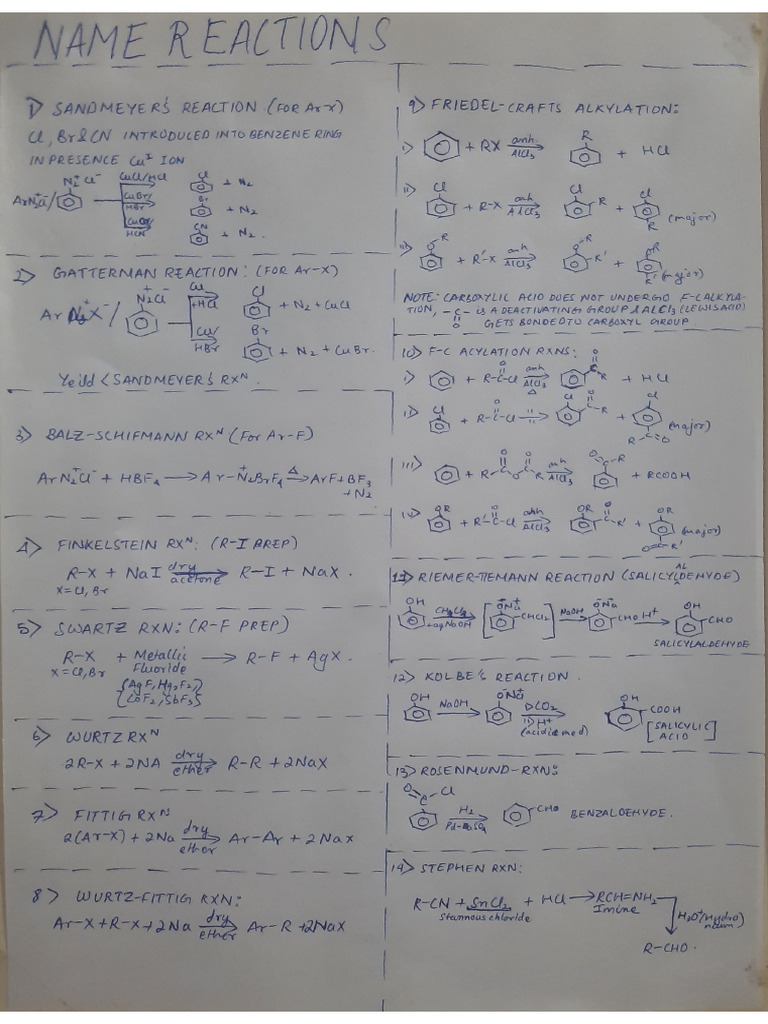 NAME REACTIONS
1) SANDMEYER'S REACTION (FOR Ar-X)
Cl, Br & CN INTRODUCED INTO BENZENE RING
IN PRESENCE Cu¹ ION
N₂⁺Cl⁻
ArN₂⁺Cl⁻/
CuCl/HCl
Cl
+ N₂
CuBr/
HBr
Br
+ N₂
HCN
CN
+ N₂.
2) GATTERMAN REACTION: (FOR Ar-X)
Ar N₂⁺X⁻/
N₂⁺Cl⁻
Cu/
+HCl
Cl
+ N₂ + CuCl
Cu/
HBr
Br
+ N₂ + CuBr.
Yeild < SANDMEYER'S RXᴺ.
3) BALZ-SCHIFMANN RXᴺ (For Ar-F)
ArN₂⁺Cl⁻ + HBF₄ → Ar-N₂⁺BrF₄ Δ→ ArF + BF₃
+ N₂
4) FINKELSTEIN RXᴺ: (R-I PREP)
R-X + NaI dry acetone → R-I + NaX.
X = Cl, Br
5) SWARTZ RXN: (R-F PREP)
R-X + Metallic → R-F + AgX.
X = Cl, Br Fluoride
{AgF, Hg₂F₂,}
{CoF₂, SbF₃}
6) WURTZ RXᴺ
2R-X + 2NA dry ether → R-R + 2NaX
7) FITTIG RXᴺ
2(Ar-X) + 2Na dry ether → Ar-Ar + 2NaX
8) WURTZ-FITTIG RXN:
Ar-X + R-X + 2Na dry ether → Ar-R + 2NaX
9) FRIEDEL-CRAFTS ALKYLATION:
i) + RX anh. AlCl₃ → R + HCl
ii) Cl + R-X anh AlCl₃ → Cl R + Cl R (major)
iii) O-R + R'-X anh AlCl₃ → OR R' + OR R' (major)
NOTE: CARBOXYLIC ACID DOES NOT UNDERGO F-C ALKYLA-
TION, -C- IS A DEACTIVATING GROUP & AlCl₃ (LEWIS ACID)
O GETS BONDED TO CARBOXYL GROUP
10) F-C ACYLATION RXNS:
i) + R-C(=O)-Cl anh AlCl₃ Δ → C(=O)-R + HCl
ii) Cl + R-C(=O)-Cl —"→ Cl C(=O)-R + Cl R-C=O (major)
iii) + R-C(=O)-O-C(=O)-R anh AlCl₃ → O=C-R + RCOOH
iv) OR + R'-C(=O)-Cl anh AlCl₃ → OR C(=O)-R' + OR O=C-R' (major)
11) RIEMER-TIEMANN REACTION (SALICYLALDEHYDE)
OH + aq NaOH → [O⁻Na⁺ CHCl₂] NaOH → O⁻Na⁺ CHO H⁺ → OH CHO
SALICYLALDEHYDE
12) KOLBE'S REACTION.
OH NaOH → O⁻Na⁺ i) CO₂ ii) H⁺ (acidic med) → OH COOH
[SALICYLIC ACID]
13) ROSENMUND-RXN:
O=C-Cl H₂ Pd-BaSO₄ → CHO BENZALDEHYDE.
14) STEPHEN RXN:
R-CN + SnCl₂ + HCl → RCH=NH₂
Stannous chloride Imine
H₃O⁺ (Hydronium)
R-CHO.